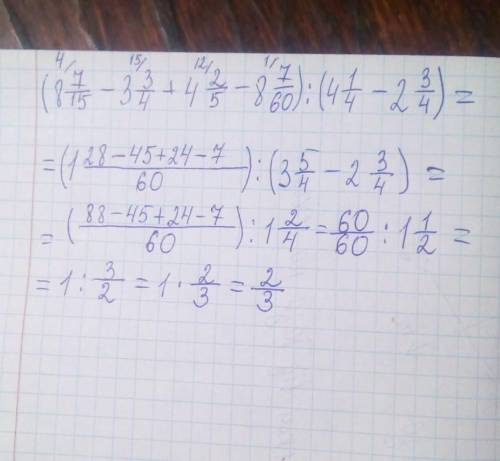 4/ 15/ 12/ 1/
(8 7/15 - 3 3/4 + 4 2/5 - 8 7/60) : (4 1/4 - 2 3/4) =
= (1 (28-45+24-7)/60) : (3 5/4 - 2 3/4) =
= ((88-45+24-7)/60) : 1 2/4 = 60/60 : 1 1/2 =
= 1 : 3/2 = 1 · 2/3 = 2/3